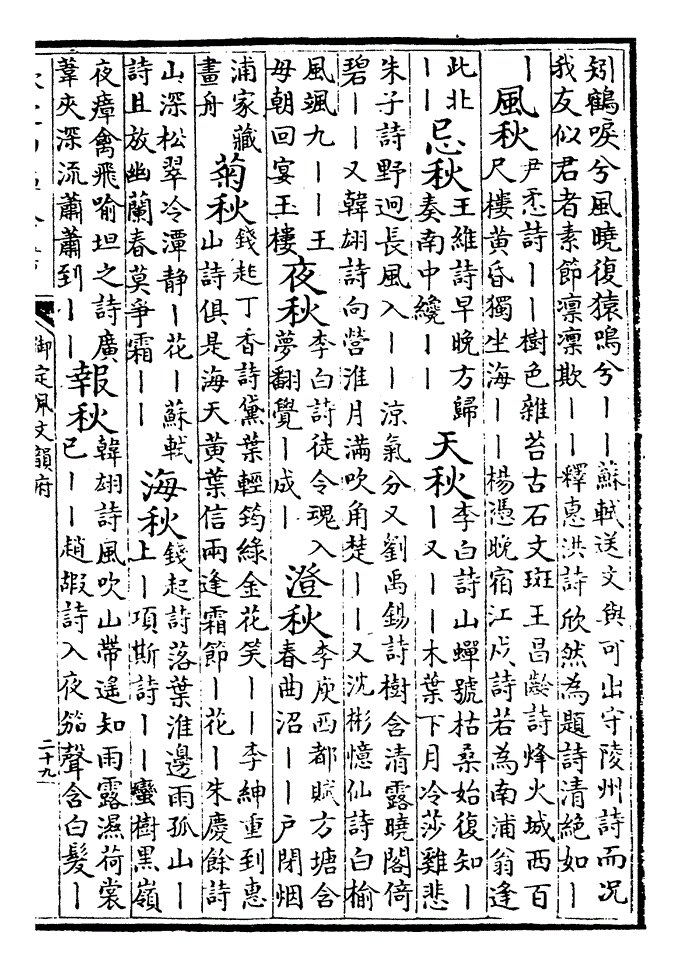 矧鶴唳兮風曉復猿鳴兮丨丨蘇軾送文與可出守陵州詩而况
我友似君者素節凜凜欺丨丨釋惠洪詩欣然為題詩清絕如丨
丨
風秋
尹悉詩丨丨樹色雜苔古石文斑王昌齡詩烽火城西百
尺樓黃昏獨坐海丨丨楊憑晚宿江戍詩若為南浦翁逢
此北
丨丨
忌秋
王維詩早晚方歸
奏南中纔丨丨
天秋
李白詩山蟬號枯桑始復知丨
丨又丨丨木葉下月冷莎雞悲
朱子詩野迥長風入丨丨涼氣分又劉禹錫詩樹含清露曉閣倚
碧丨丨又韓翃詩向營淮月滿吹角楚丨丨又沈彬憶仙詩白榆
風颯九丨丨王
母朝回宴玉樓
夜秋
李白詩徒令魂入
夢翻覺丨成丨
澄秋
李庾西都賦方塘含
春曲沼丨丨户閉烟
浦家藏
畫舟
菊秋
錢起丁香詩黛葉輕筠綠金花笑丨丨李紳重到惠
山詩俱是海天黃葉信兩逢霜節丨花丨朱慶餘詩
山深松翠冷潭靜丨花丨蘇軾
詩且放幽蘭春莫爭霜丨丨
海秋
錢起詩落葉淮邊雨孤山丨
上丨項斯詩丨丨蠻樹黑嶺
夜瘴禽飛喻坦之詩廣
葦夾深流蕭蕭到丨丨
報秋
韓翃詩風吹山帶遙知雨露濕荷裳
已丨丨趙嘏詩入夜笳聲含白髮丨
御定佩文韻府
二十九